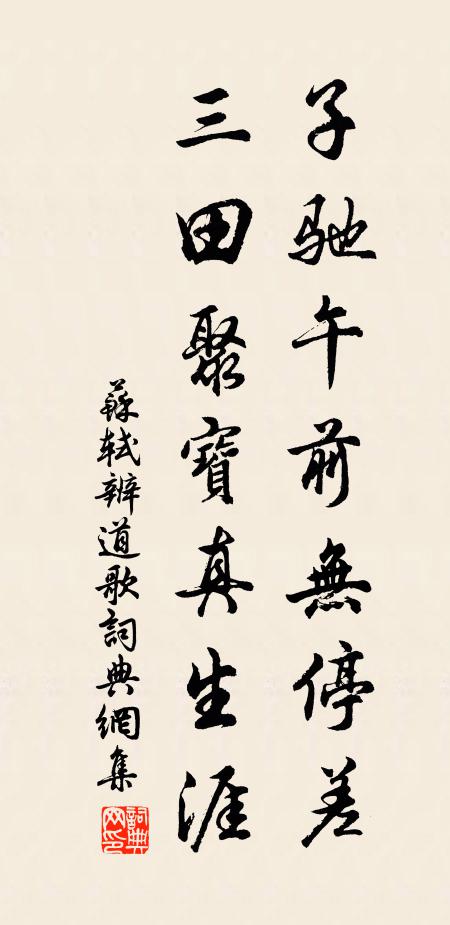 子馳午前無停差
三田聚寶真生涯
蘇軾辨道歌詞典網集
詞典網印